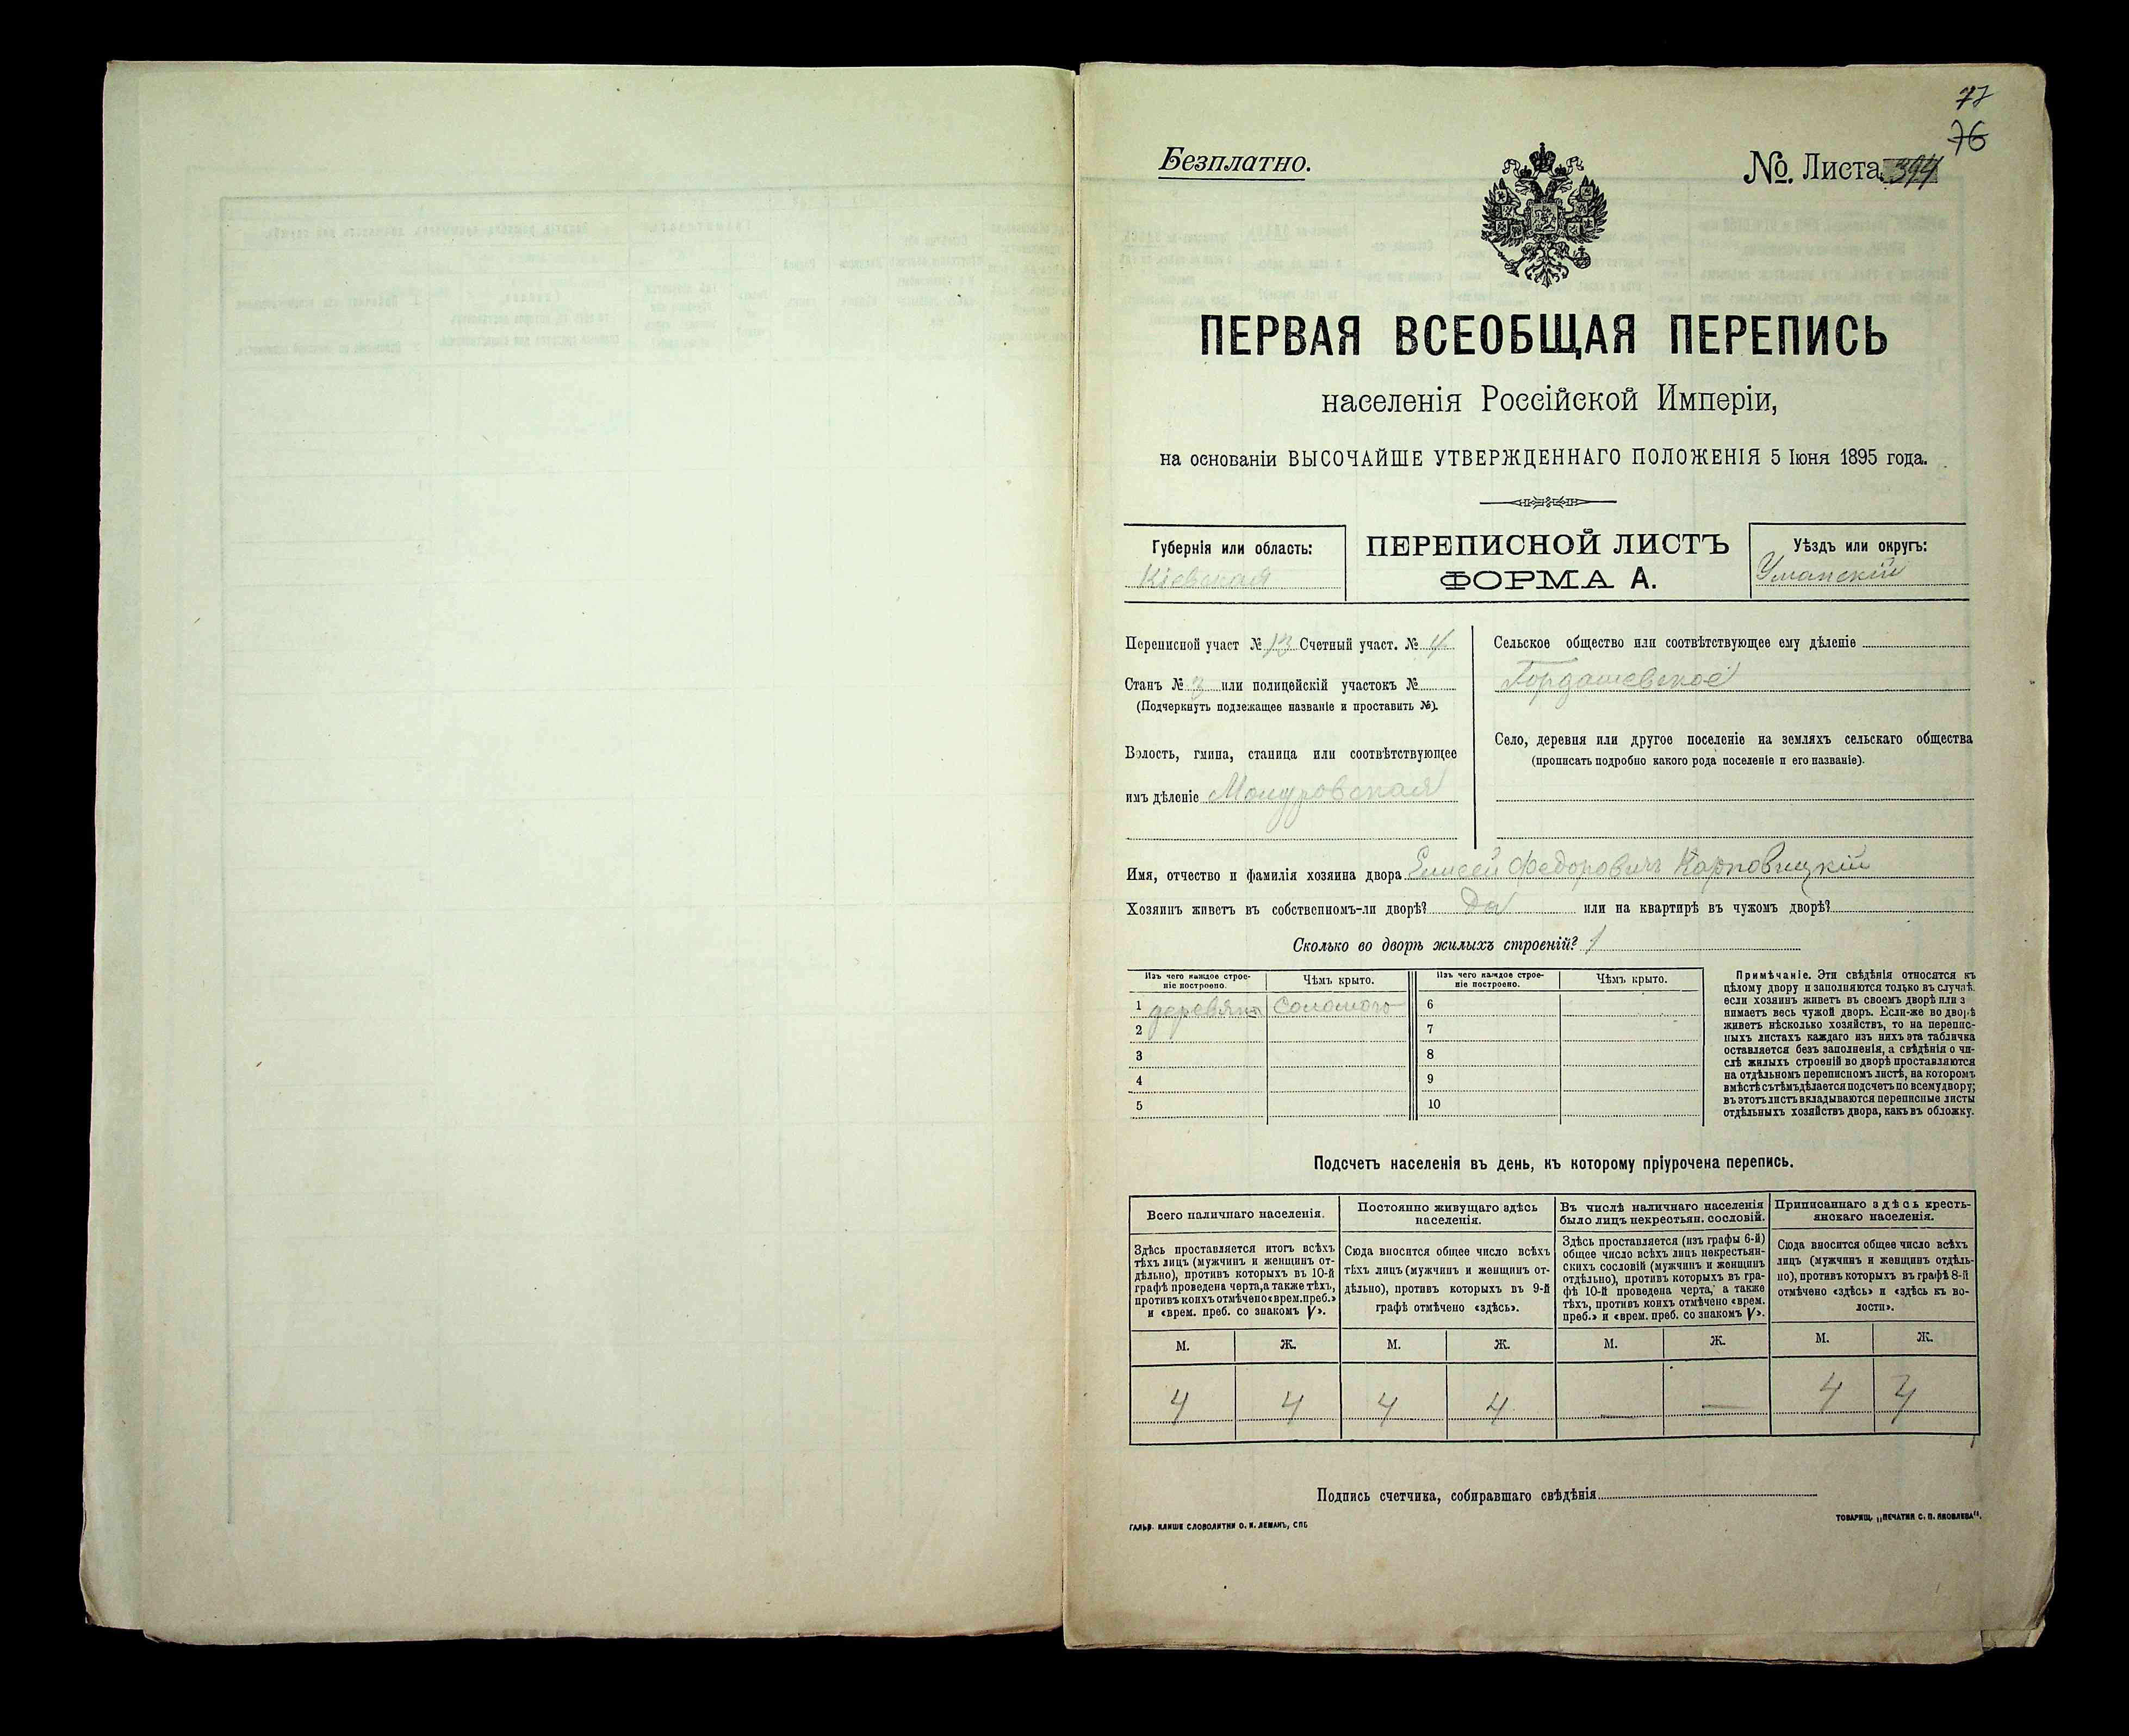 77
76
Безплатно.
№. Листа 394
ПЕРВАЯ ВСЕОБЩАЯ ПЕРЕПИСЬ
населенія Россійской Имперіи,
на основаніи ВЫСОЧАЙШЕ УТВЕРЖДЕННАГО ПОЛОЖЕНІЯ 5 Іюня 1895 года.
Губернія или область:
Кіевская
ПЕРЕПИСНОЙ ЛИСТЪ
ФОРМА А.
Уѣздъ или округъ:
Уманскій
Переписной участ № 13 Счетный участ. № 4
Станъ № 3 или полицейскій участокъ №
(Подчеркнуть подлежащее названіе и проставить №).
Волость, гмина, станица или соотвѣтствующее
имъ дѣленіе
Сельское общество или соотвѣтствующее ему дѣленіе
Гордашевское
Село, деревня или другое поселеніе на земляхъ сельскаго общества
(прописать подробно какого рода поселеніе и его названіе).
Имя, отчество и фамилія хозяина двора Елисей Федоровичъ Карповицкій
Хозяинъ живетъ въ собственномъ-ли дворѣ? Да или на квартирѣ въ чужомъ дворѣ?
Сколько во дворѣ жилыхъ строеній? 1
Изъ чего каждое строе-
ніе построено.
Чѣмъ крыто.
Изъ чего каждое строе-
ніе построено.
Чѣмъ крыто.
1 деревян Соломою 6
2 7
3 8
4 9
5 10
Примѣчаніе. Эти свѣдѣнія относятся къ
цѣлому двору и заполняются только въ случаѣ
если хозяинъ живетъ въ своемъ дворѣ или з
нимаетъ весь чужой дворъ. Если-же во дворѣ
живетъ нѣсколько хозяйствъ, то на перепис-
ныхъ листахъ каждаго изъ нихъ эта табличка
оставляется безъ заполненія, а свѣдѣнія о чи-
слѣ жилыхъ строеній во дворѣ проставляются
на отдѣльномъ переписномъ листѣ, на которомъ
вмѣстѣ съ тѣмъ дѣлается подсчетъ по всему двору;
въ этотъ листъ вкладываются переписные листы
отдѣльныхъ хозяйствъ двора, какъ въ обложку.
Подсчетъ населенія въ день, къ которому пріурочена перепись.
Всего наличнаго населенія.
Здѣсь проставляется итогъ всѣхъ
тѣхъ лицъ (мужчинъ и женщинъ от-
дѣльно), противъ которыхъ въ 10-й
графѣ проведена черта, а также тѣхъ,
противъ коихъ отмѣчено «врем. преб.»
и «врем. преб. со знакомъ V».
Постоянно живущаго здѣсь
населенія.
Сюда вносится общее число всѣхъ
тѣхъ лицъ (мужчинъ и женщинъ от-
дѣльно), противъ которыхъ въ 9-й
графѣ отмѣчено «здѣсь».
Въ числѣ наличнаго населенія
было лицъ некрестьян. сословій.
Здѣсь проставляется (изъ графы 6-й)
общее число всѣхъ лицъ некрестьян-
скихъ сословій (мужчинъ и женщинъ
отдѣльно), противъ которыхъ въ гра-
фѣ 10-й проведена черта, а также
тѣхъ, противъ коихъ отмѣчено «врем.
преб.» и «врем. преб. со знакомъ V».
Приписаннаго здѣсь кресть-
янскаго населенія.
Сюда вносится общее число всѣхъ
лицъ (мужчинъ и женщинъ отдѣль-
но), противъ которыхъ въ графѣ 8-й
отмѣчено «здѣсь» и «здѣсь къ во-
лости».
М. Ж. М. Ж. М. Ж. М. Ж.
4 4 4 4 — — 4 4
Подпись счетчика, собиравшаго свѣдѣнія
ГАЛЬВ. КЛИШЕ СЛОВОЛИТНИ О. И. ЛЕМАНЪ, СПБ
ТОВАРИЩ. „ПЕЧАТНЯ С. П. ЯКОВЛЕВА".